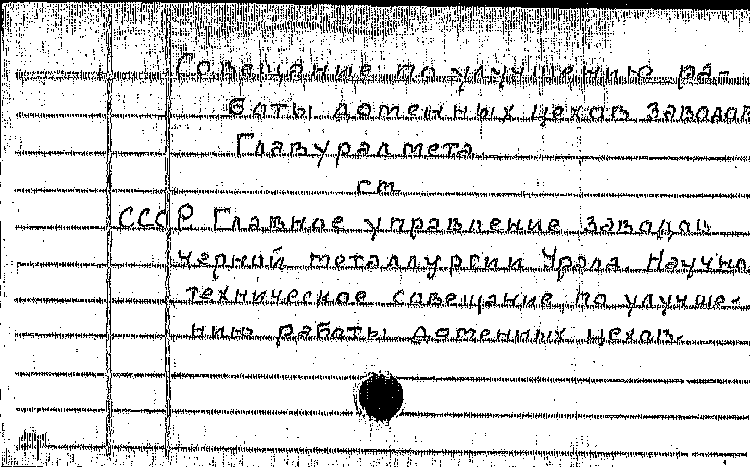 Совещание по улучшению ра-
боты доменных цехов заводов
Главуралмета
см
СССР Главное управление заводов
черной металлургии Урала. Научно
техническое совещание по улучше-
нию работы доменных цехов.